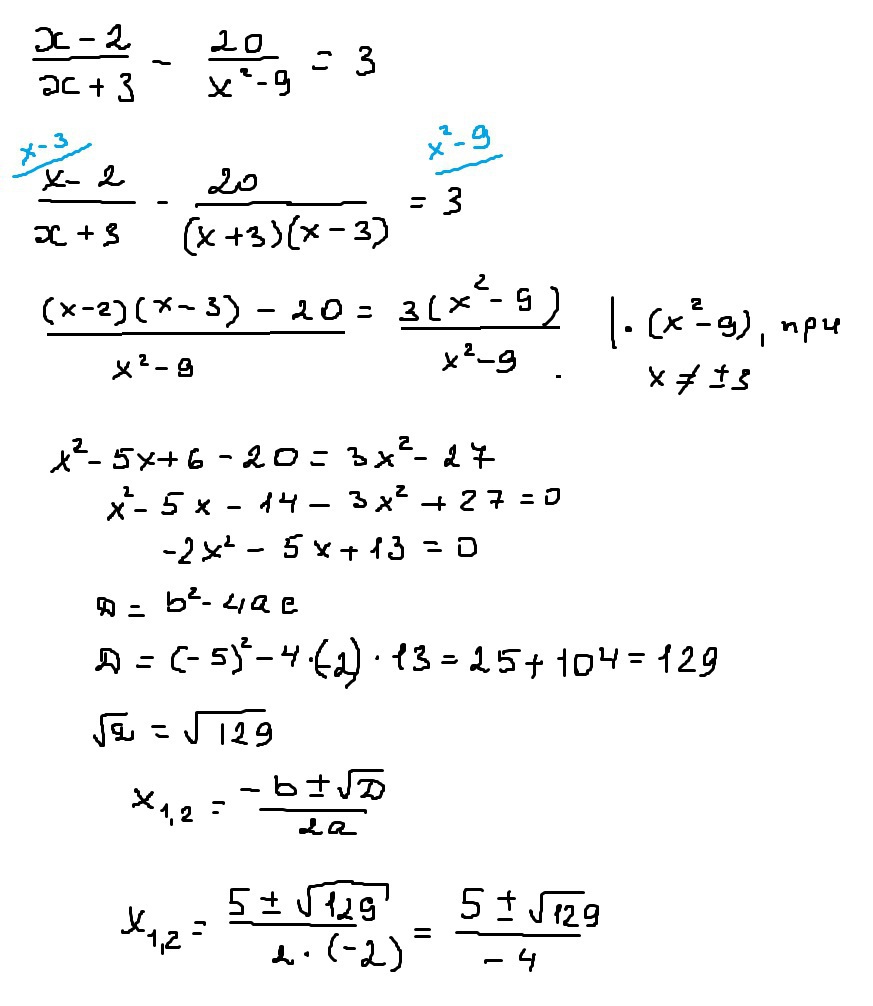 (x-2)/(x+3) - 20/(x²-9) = 3
x-3 x²-9
(x-2)/(x+3) - 20/((x+3)(x-3)) = 3
((x-2)(x-3) - 20)/(x²-9) = 3(x²-9)/(x²-9) . | · (x²-9), при
x ≠ ±3
x² - 5x + 6 - 20 = 3x² - 27
x² - 5x - 14 - 3x² + 27 = 0
-2x² - 5x + 13 = 0
D = b² - 4ac
D = (-5)² - 4·(-2)·13 = 25 + 104 = 129
√D = √129
x₁,₂ = (-b ± √D)/(2a)
x₁,₂ = (5 ± √129)/(2·(-2)) = (5 ± √129)/(-4)